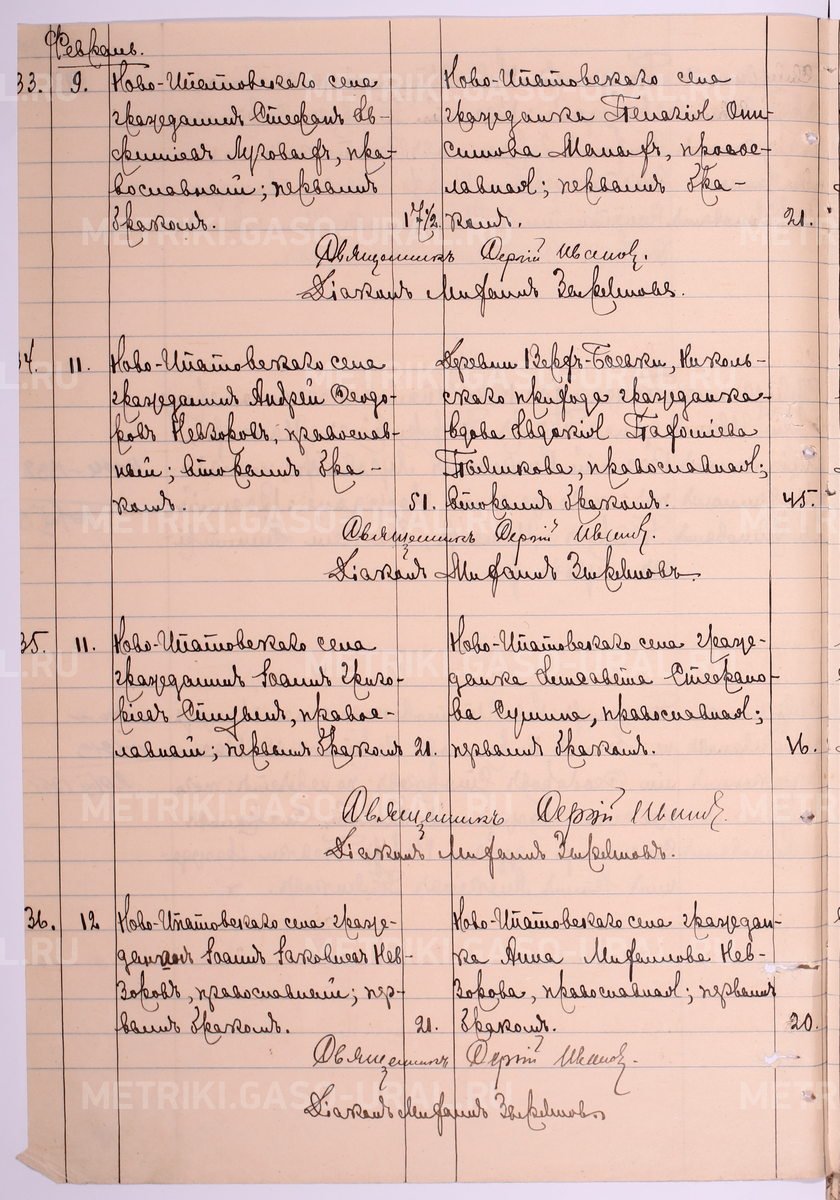 Февраль.
33. 9. Ново-Ипатовскаго села
гражданинъ Стефанъ Ев-
фимиевъ Луковыхъ, пра-
вославный; первымъ
бракомъ. 17 1/2.
Ново-Ипатовскаго села
гражданка Пелагія Они-
симова Малыхъ, правос-
лавная; первымъ бра-
комъ. 21.
Священникъ Сергій Ивановъ.
Діаконъ Михаилъ
34. 11. Ново-Ипатовскаго села
гражданинъ Андрей Феодо-
ровъ Невзоровъ, православ-
ный; вторымъ бра-
комъ. 51.
Деревни Верхъ-Боевки, Николь-
скаго прихода гражданка
вдова Евдокія Пафотіева
православная;
вторымъ бракомъ. 45.
Священникъ Сергій Ивановъ.
Діаконъ Михаилъ
35. 11. Ново-Ипатовскаго села
гражданинъ Іоаннъ Григо-
ріевъ правос-
лавный; первымъ бракомъ 21.
Ново-Ипатовскаго села граж-
данка Елисавета Стефано-
ва Сушина, православная;
первымъ бракомъ.
Священникъ Сергій Ивановъ.
Діаконъ Михаилъ
36. 12 Ново-Ипатовскаго села граж-
данинъ Іоаннъ Іаковлевъ Нев-
зоровъ, православный; пер-
вымъ бракомъ. 21.
Ново-Ипатовскаго села граждан-
ка Анна Михаилова Нев-
зорова, православная; первымъ
бракомъ. 20.
Священникъ Сергій Ивановъ.
Діаконъ Михаилъ
METRIKI.GASO-URAL.RU